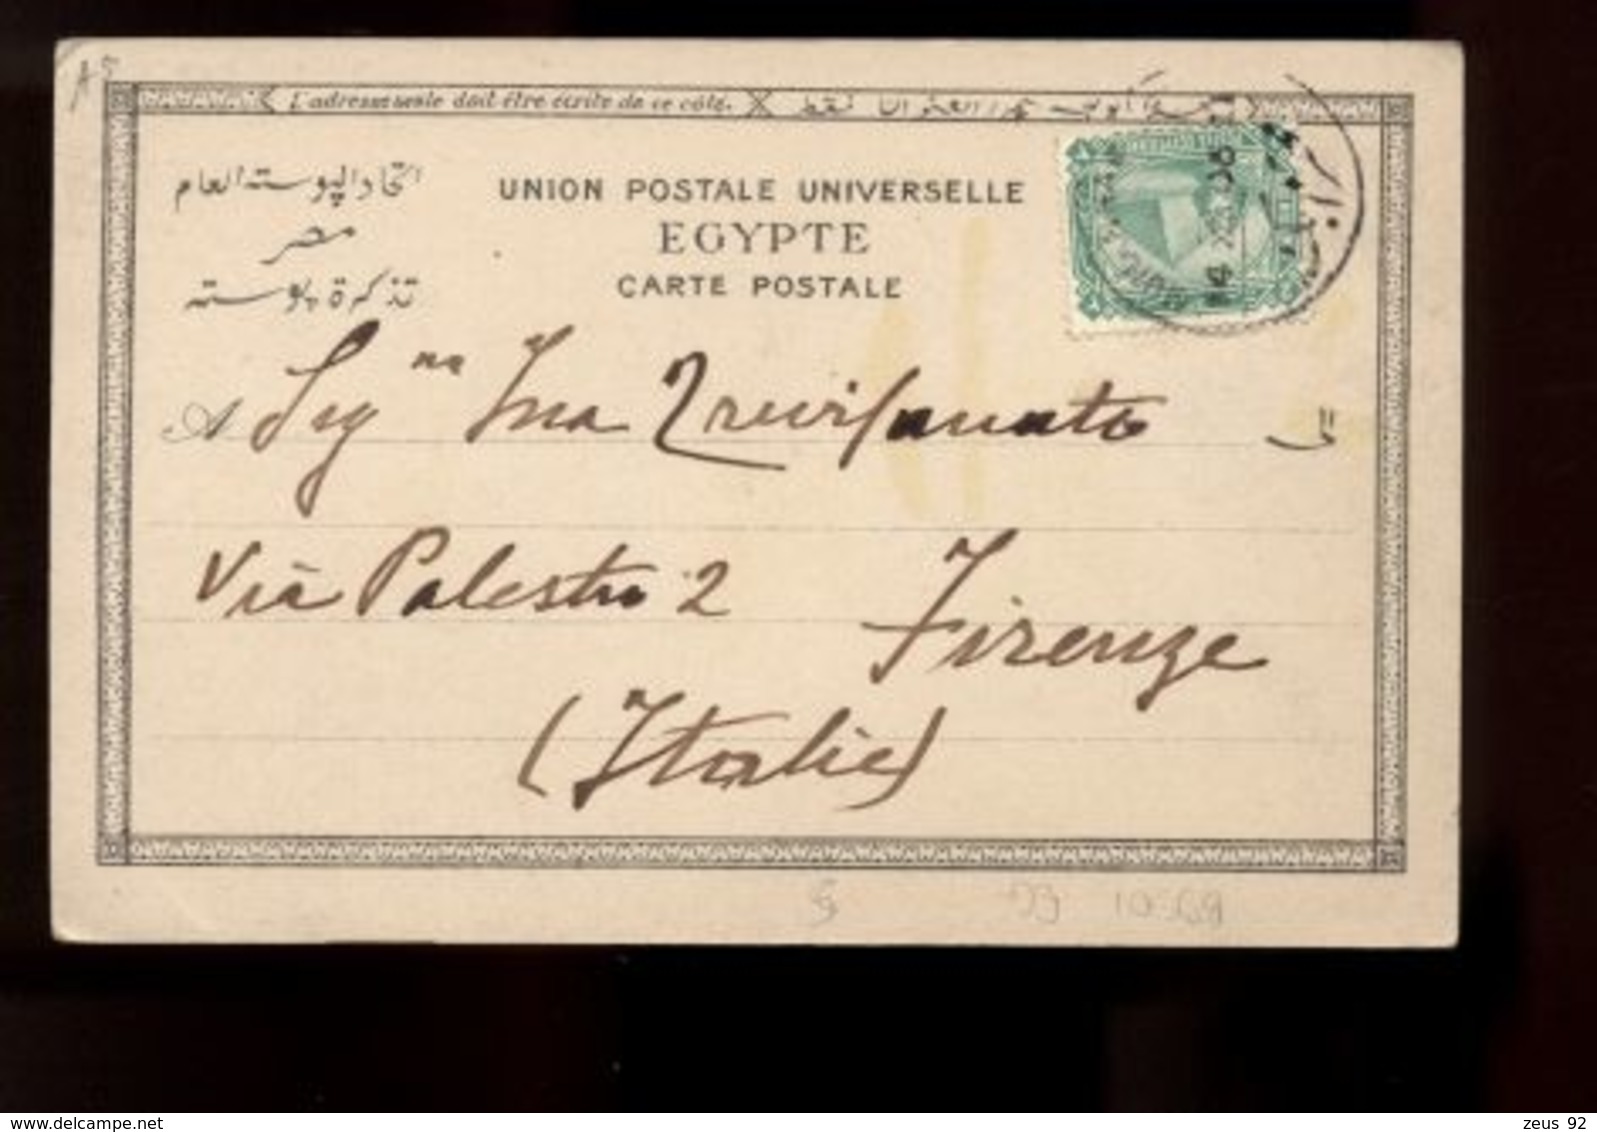 L'adresse seule doit être écrite de ce côté.
اتحاد البوسته العام
مصر
تذكرة بوسته
UNION POSTALE UNIVERSELLE
EGYPTE
CARTE POSTALE
A Sig na Ina
Via Palestro 2 Firenze
(Italie)
10569
www.delcampe.net
zeus 92